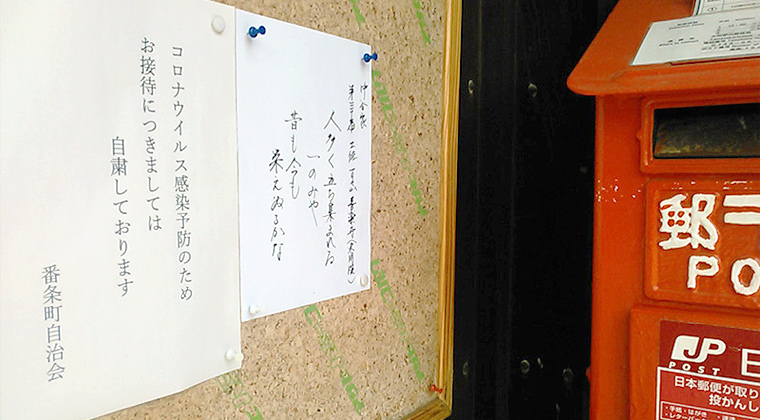 コロナウイルス感染予防のため
お接待につきましては
自粛しております
番条町自治会
人多く立ち集まれる
一のみや
昔も今も
栄えぬるかな
郵
PO
JP
POST
日
日本郵便が取り
投かんし